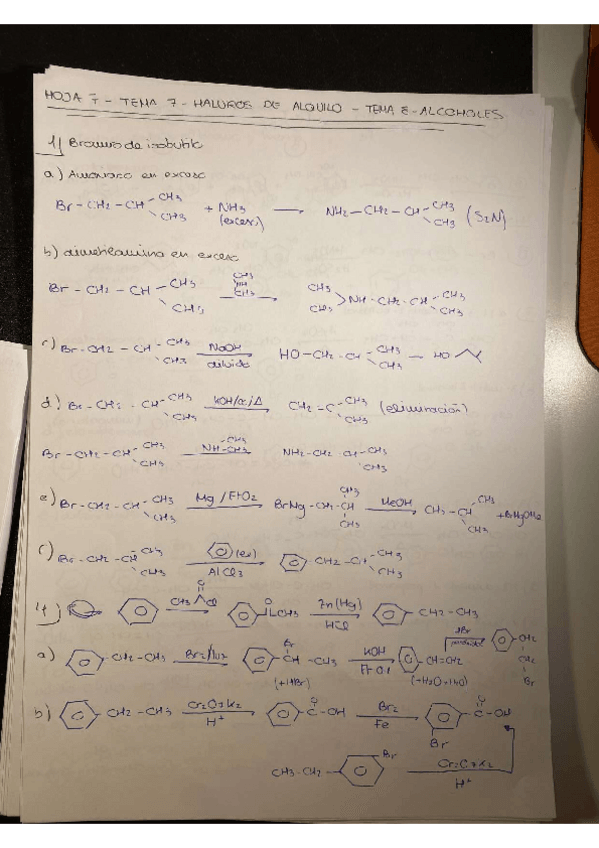 HOJA 7 - TEMA 7 - HALUROS DE ALQUILO - TEMA 8 - ALCOHOLES
1) Bromuro de isobutilo
a) Amoniaco en exceso
Br-CH2-CH CH3 CH3 + NH3 (exceso) → NH2-CH2-CH CH3 CH3 (S2N)
b) dimetilamina en exceso
Br-CH2-CH CH3 CH3 CH3 NH CH3 → CH3 CH3 NH-CH2-CH CH3 CH3
c) Br-CH2-CH CH3 CH3 NaOH diluido → HO-CH2-CH CH3 CH3 - HO
d) Br-CH2-CH CH3 CH3 KOH/ /Δ → CH2-C CH3 CH3 (eliminación)
Br-CH2-CH CH3 CH3 NH-CH3 CH3 → NH2-CH2 CH-CH3 CH3
e) Br-CH2-CH CH3 CH3 Mg/Et2O → BrMg-CH2-CH CH3 CH3 MeOH → CH3-CH CH3 CH3 + BrMgOMe
f) Br-CH2-CH CH3 CH3 (ex) AlCl3 → CH2-CH CH3 CH3
4) CH3 O Cl → O CH3 Zn(Hg) HCl → CH2-CH3
a) CH2-CH3 Br2/luz → Br CH-CH3 (+HBr) KOH EtOH → CH=CH2 HBr → CH2 CH2 Br
b) CH2-CH3 Cr2O7K2 H+ → O C-OH Br2 Fe → O C-OH Br
CH3-CH2 Br Cr2O7K2 H+